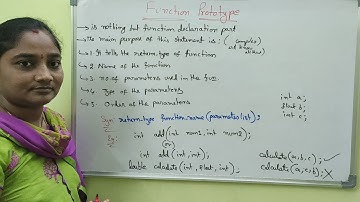 Function Prototype
→ is nothing but function declaration part
→ The main purpose of this statement is : (
→ 1. It tells the return type of function
→ 2. Name of the function
→ 3. no. of parameters used in the fun.
→ 4. Type of the parameters
→ 5. Order of the parameters
int a;
float b;
int c;
Syn: return_type function_name (parameter list);
Eg: int add (int num1, int num2);
(or)
int add (int, int);
double calculate (int, float, int);
calculate (a, b, c); ✓
calculate (a, c, b); ✗